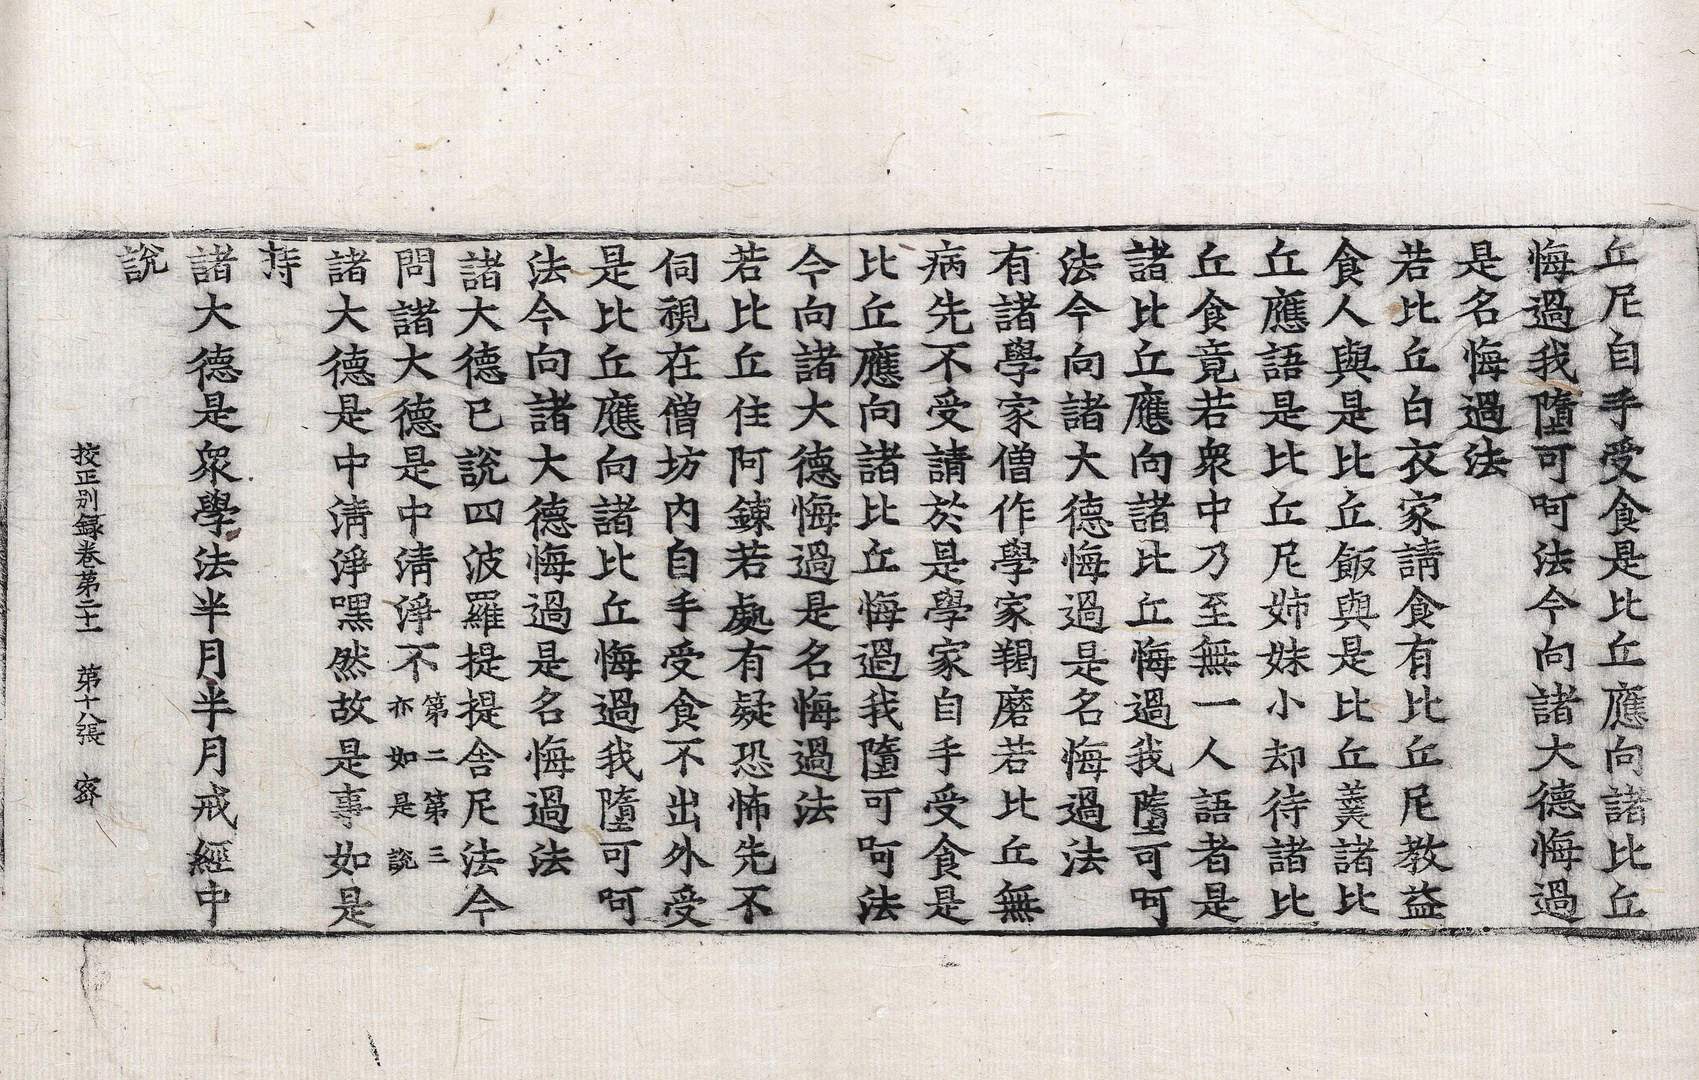 丘尼自手受食是比丘應向諸比丘
悔過我墮可呵法今向諸大德悔過
是名悔過法
若比丘白衣家請食有比丘尼教益
食人與是比丘飯與是比丘羹諸比
丘應語是比丘尼姉妹小却待諸比
丘食竟若衆中乃至無一人語者是
諸比丘應向諸比丘悔過我墮可呵
法今向諸大德悔過是名悔過法
有諸學家僧作學家羯磨若比丘無
病先不受請於是學家自手受食是
比丘應向諸比丘悔過我墮可呵法
今向諸大德悔過是名悔過法
若比丘住阿鍊若處有疑恐怖先不
伺視在僧坊內自手受食不出外受
是比丘應向諸比丘悔過我墮可呵
法今向諸大德悔過是名悔過法
諸大德已說四波羅提提舍尼法今
問諸大德是中淸淨不第二第三亦如是說
諸大德是中淸淨嘿然故是事如是
持
諸大德是衆學法半月半月戒經中
說
挍正別録卷第二十一 第十八張 宻